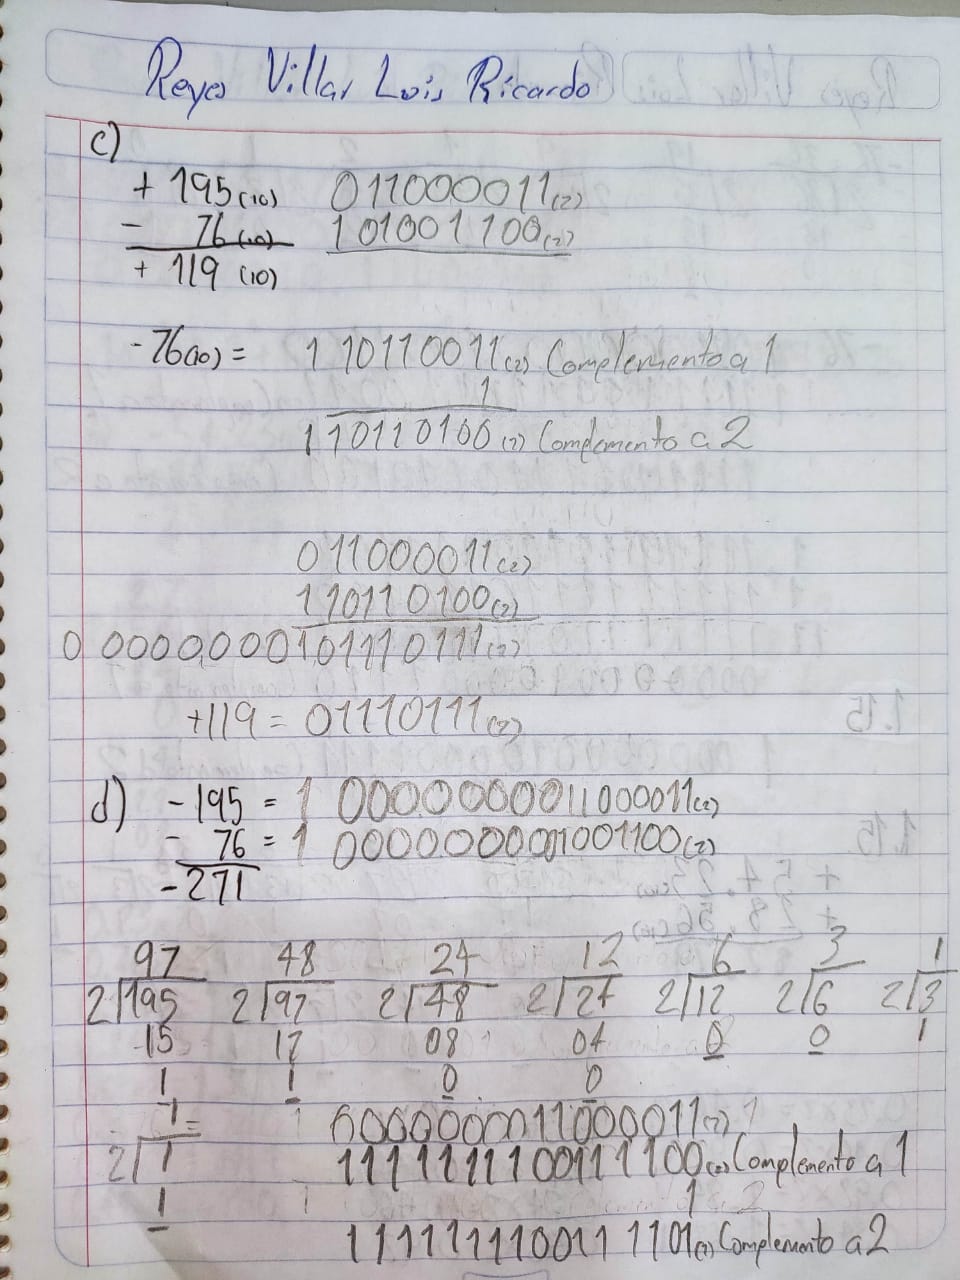 Reyes Villar Luis Ricardo
c)
+ 195(10) 011000011(2)
- 76(10) 101001100(2)
+ 119 (10)
-76(10) = 1 10110011(2) Complemento a 1
1
110110100(2) Complemento a 2
011000011(2)
110110100(2)
0 0000000101110111(2)
+119 = 01110111(2)
d) -195 = 1 0000000011000011(2)
- 76 = 1 0000000001001100(2)
-271
97 48 24 12 6 3 1
2|195 2|97 2|48 2|24 2|12 2|6 2|3
15 17 08 04 0 0 1
1 1 0 0
0000000011000011(2)
2|1 1111111100111100(2) Complemento a 1
1 1
1111111100111101(2) Complemento a 2
1.15
1.15